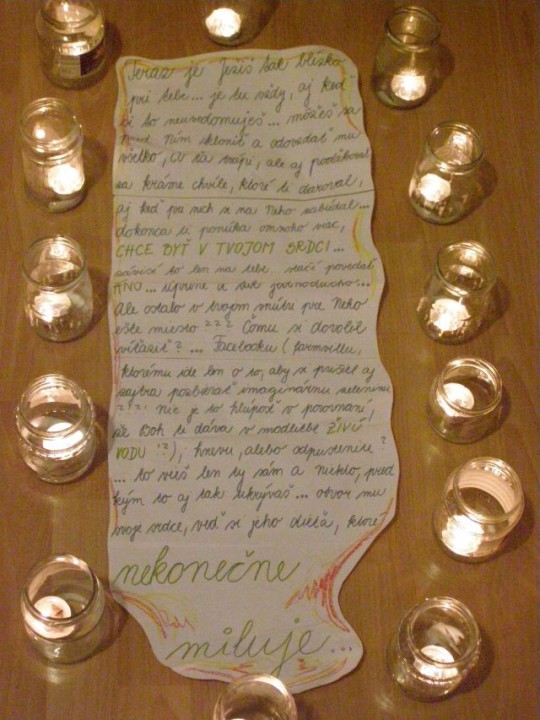 Teraz je Ježiš tak blízko
pri tebe... je tu vždy, aj keď
si to neuvedomuješ... môžeš sa
pred Ním skloniť a odovzdať mu
všetko, čo ťa trápi, ale aj poďakovať
za krásne chvíle, ktoré ti daroval,
aj keď pri nich si na Neho zabúdal...
dokonca ti ponúka omnoho viac,
CHCE BYŤ V TVOJOM SRDCI...
závisí to len na tebe stačí povedať
ÁNO... úprime a tak jednoducho...
Ale ostalo v tvojom vnútri pre Neho
ešte miesto ??? Čomu si dovolil
víťaziť? ... Facebooku (farmvillu,
ktorému ide len o to, aby si prišiel aj
zajtra pozbierať imaginárnu zeleninu
?!? nie je to hlúposť v porovnaní,
že Boh ti dáva v modlitbe ŽIVÚ
VODU !?), hnevu, alebo odpusteniu?
... to vieš len ty sám a Niekto, pred
kým to aj tak ukrývaš... otvor mu
svoje srdce, veď si jeho dieťa, ktoré
nekonečne
miluje...